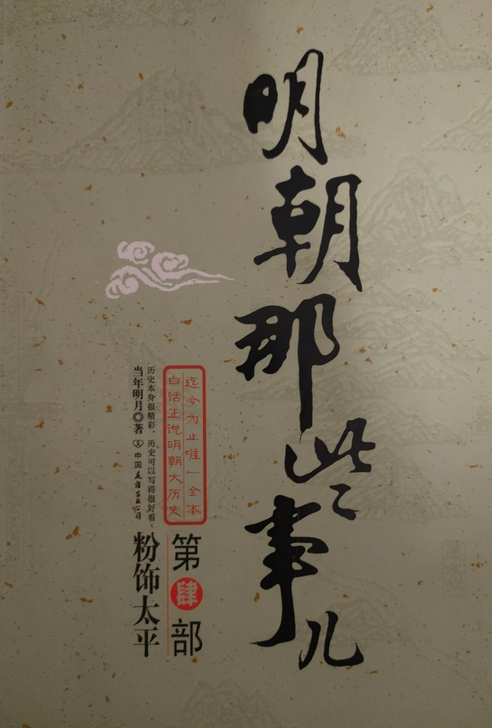 明朝那些事儿
迄今为止唯一全本
白话正说明朝大历史
第肆部
粉饰太平
历史本身很精彩，历史可以写得很好看。
当年明月◎著
中国友谊出版公司